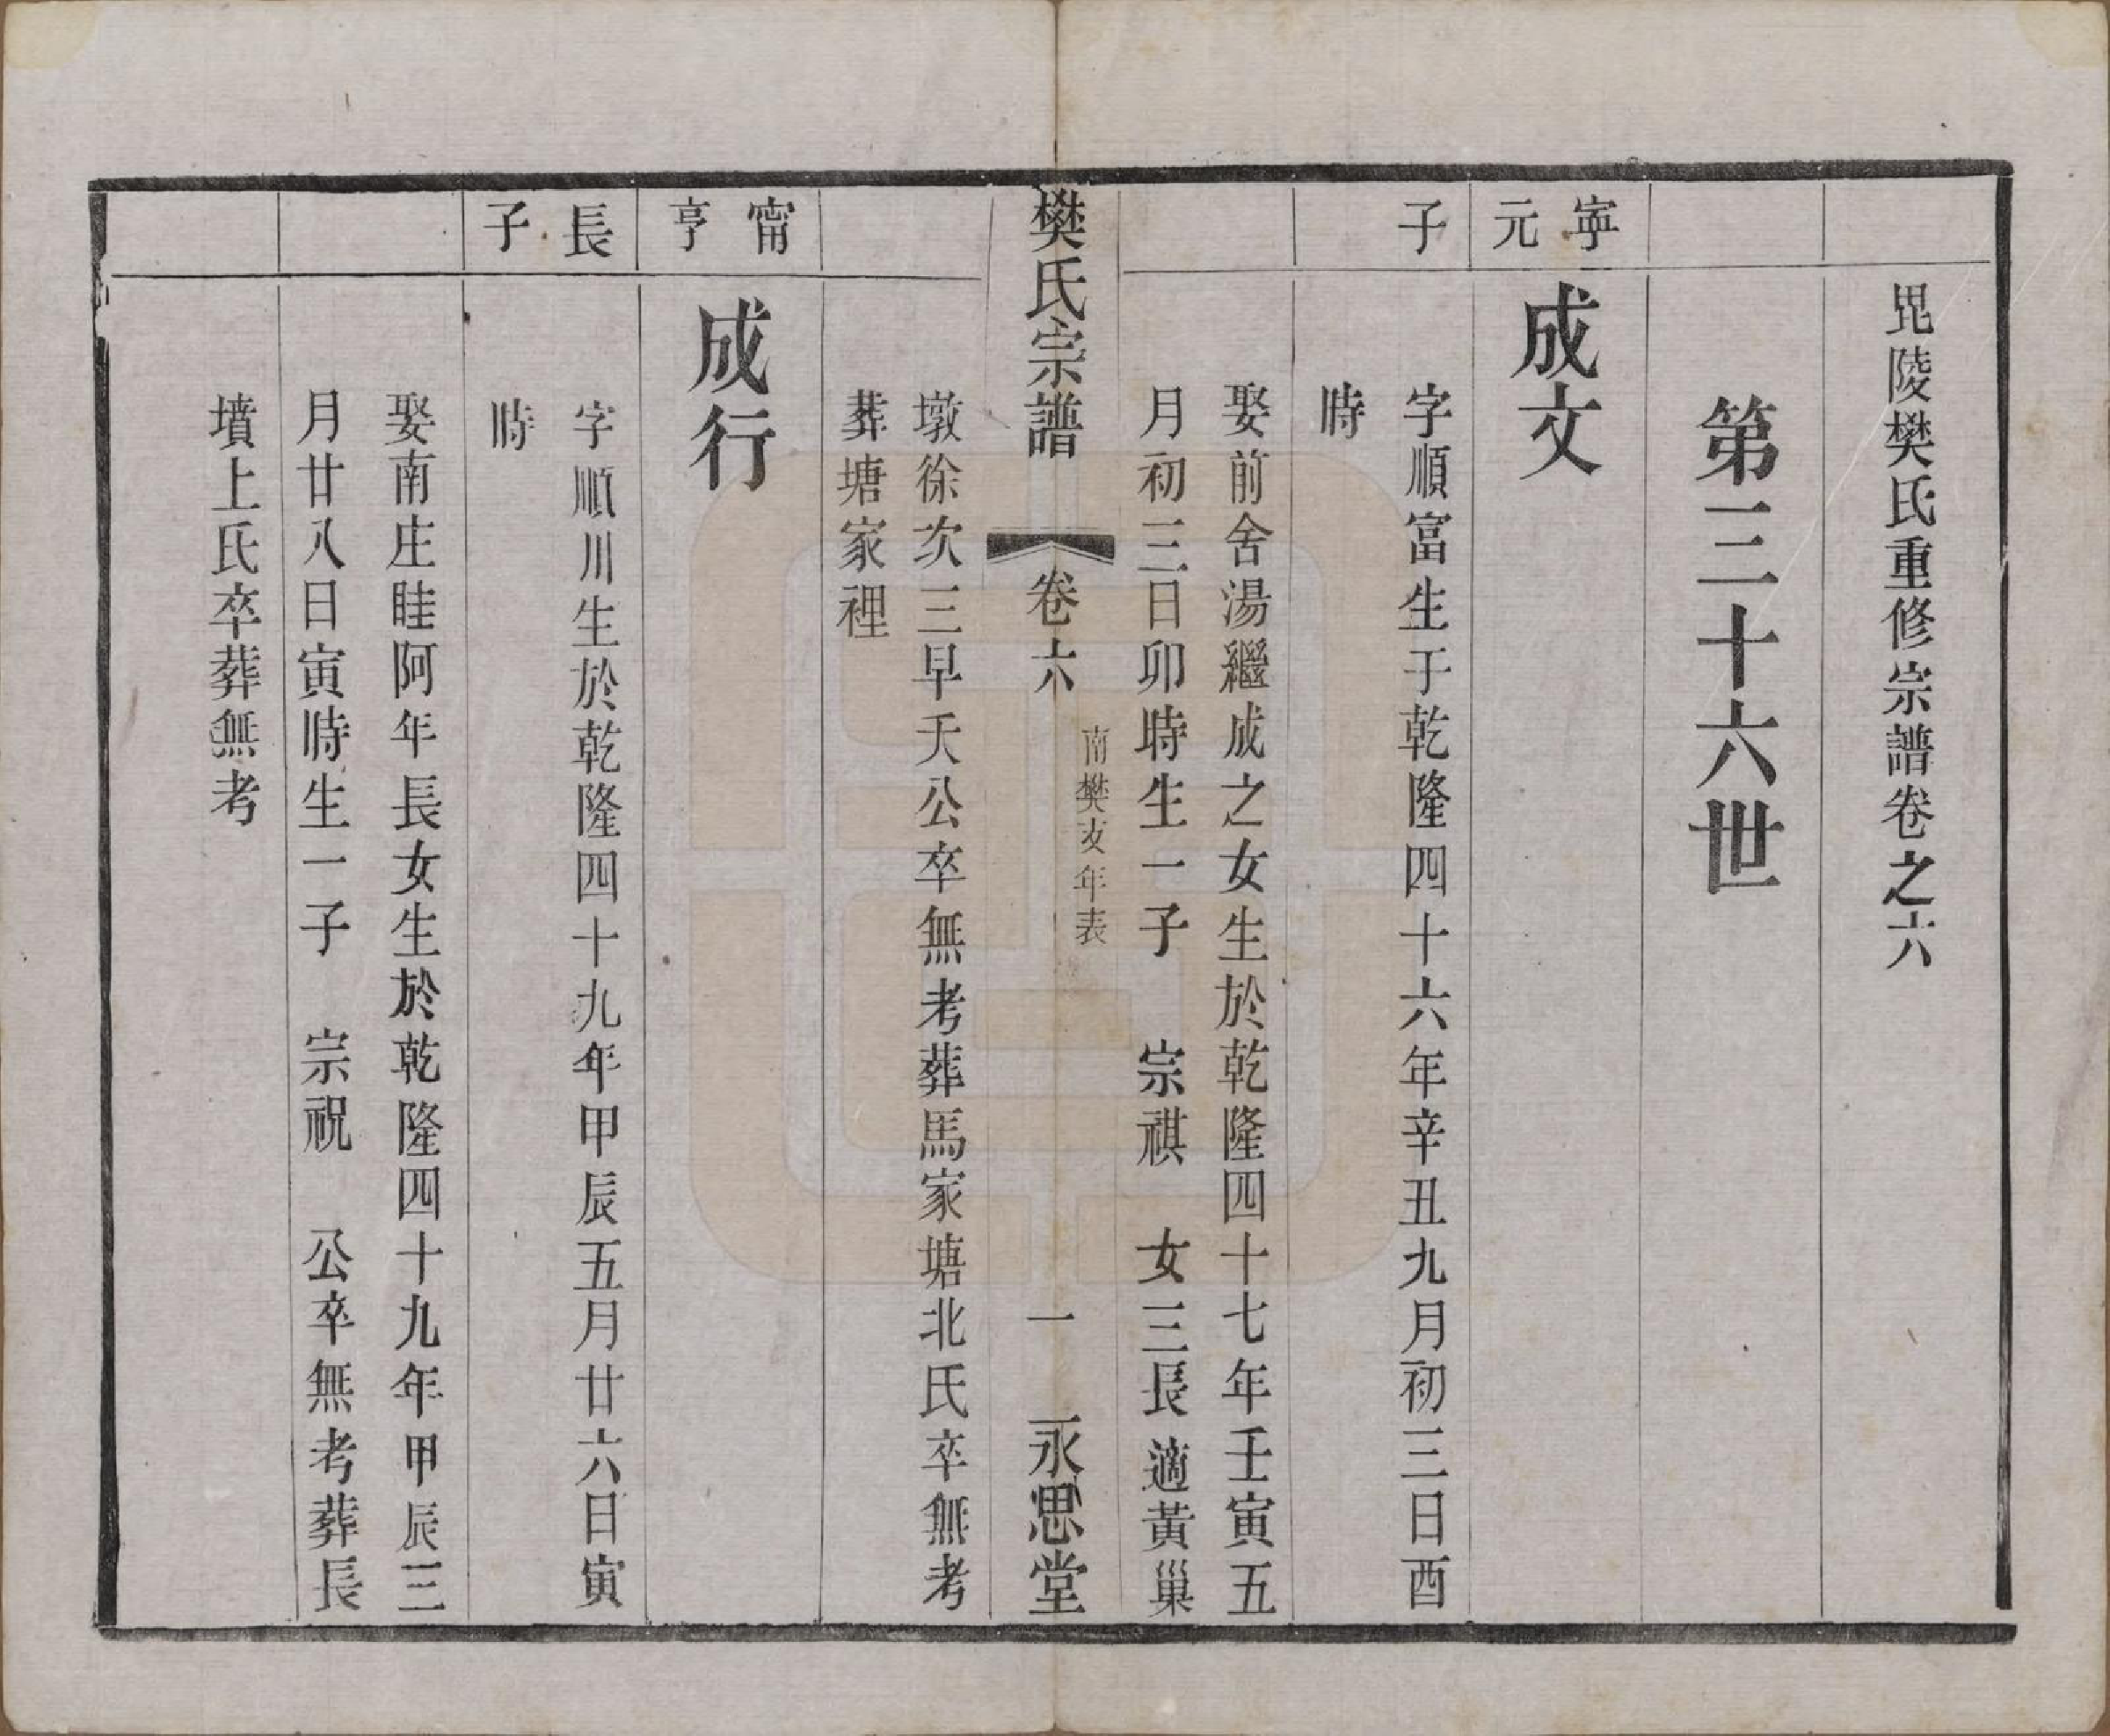 毘陵樊氏重修宗譜卷之六
第三十六世
寧元
子
成文
字順富生于乾隆四十六年辛丑九月初三日酉
時
娶前舍湯繼成之女生於乾隆四十七年壬寅五
月初三日卯時生一子　宗祺　女三長適黃巢
樊氏宗譜
卷六
南樊支年表
一
永思堂
墩徐次三早夭公卒無考葬馬家塘北氏卒無考
葬塘家裡
甯亨
長子
成行
字順川生於乾隆四十九年甲辰五月廿六日寅
時
娶南庄眭阿年長女生於乾隆四十九年甲辰三
月廿八日寅時生一子　宗祝　公卒無考葬長
墳上氏卒葬無考